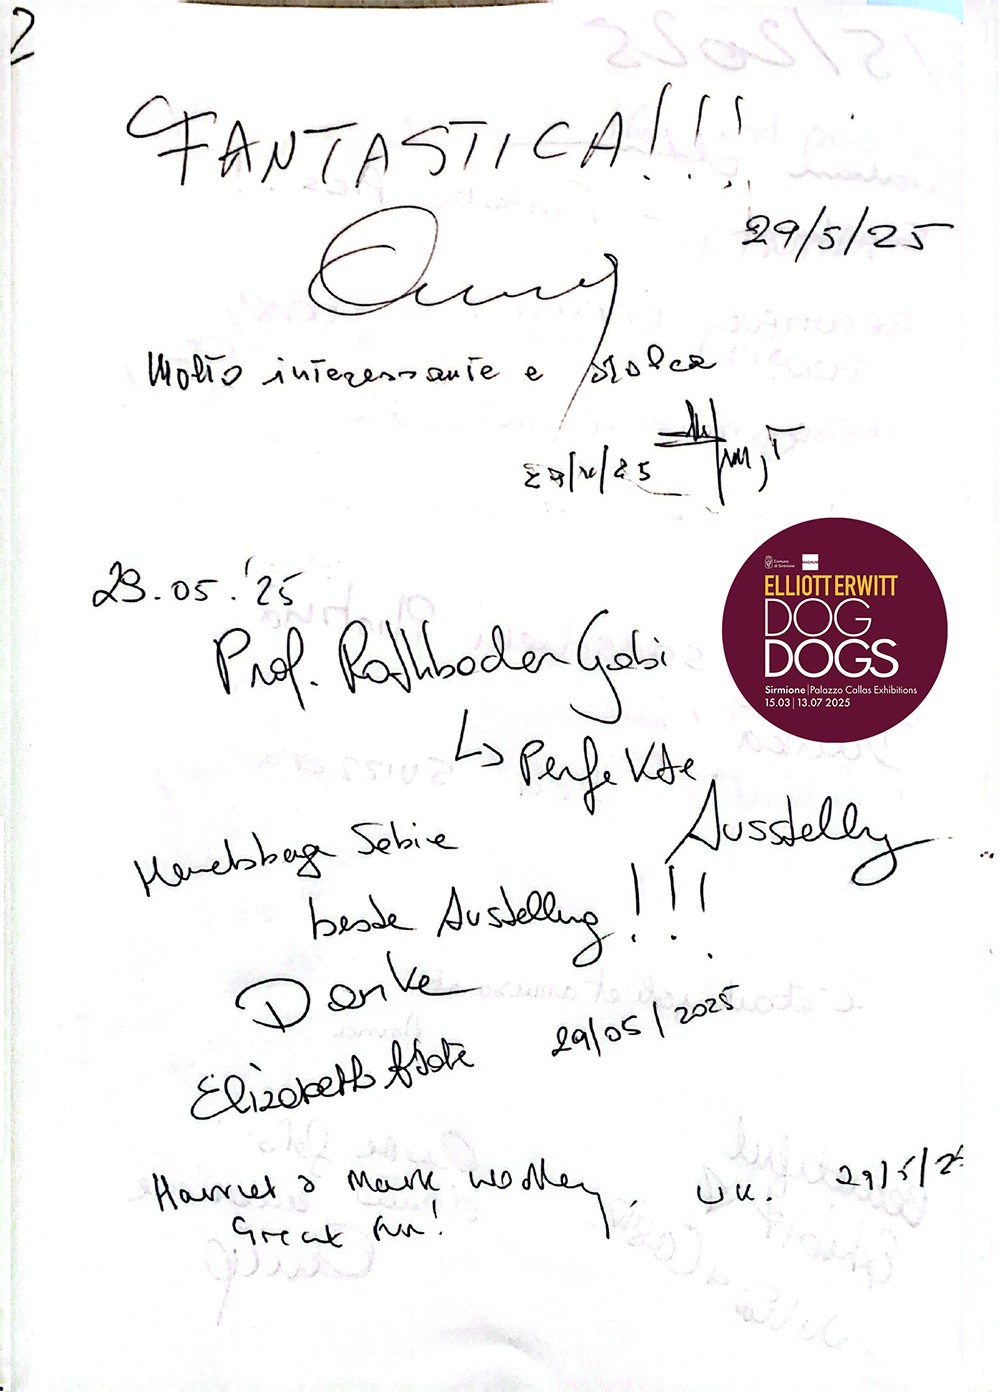 2
FANTASTICA!!!
29/5/25
Molto interessante e
/25
Comune
di Sirmione
MAGNUM
ELLIOTT ERWITT
DOG
DOGS
Sirmione | Palazzo Callas Exhibitions
15.03 | 13.07 2025
29.05.'25
Prof. Rathboden Gabi
↳ Perfekte
Ausstellung
beste Austellung!!!
Danke
29/05/2025
Elizabeth
Harriet & Mark UK. 29/5/25
Great fun!